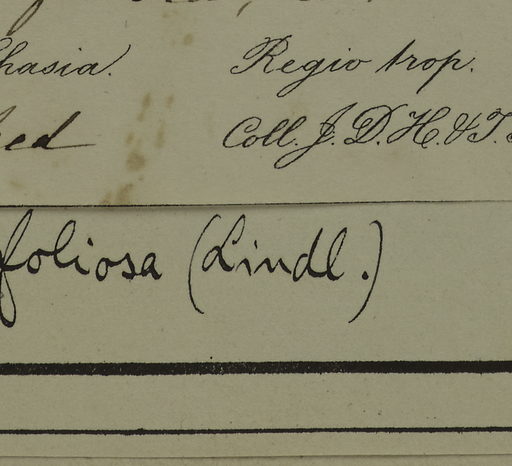 Khasia. Regio trop.
Coll. J. D. H. & T.
foliosa (Lindl.)